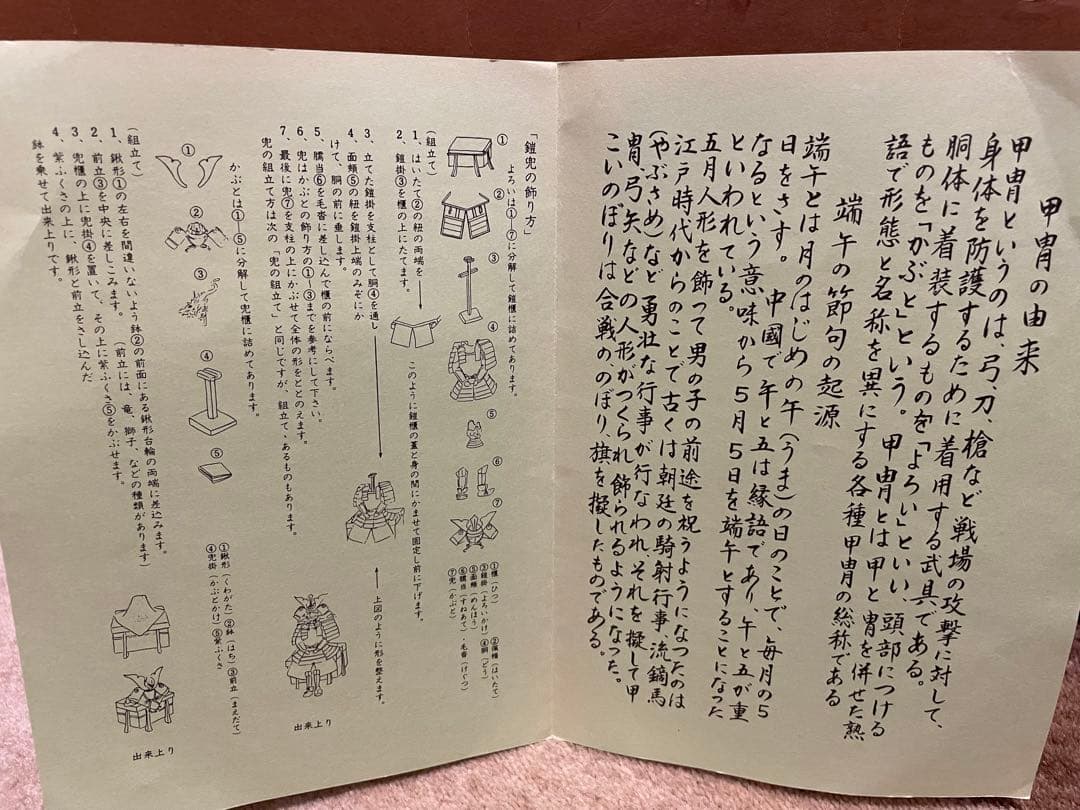 甲冑の由来
甲冑というのは、弓、刀、槍など戦場の攻撃に対して、
身体を防護するために着用する武具である。
胴体に着装するものを「よろい」といい、頭部につける
ものを「かぶと」という。甲冑とは甲と冑を併せた熟
語で形態と名称を異にする各種甲冑の総称である
端午の節句の起源
端午とは月のはじめの午(うま)の日のことで、毎月の5
日をさす。中國で午と五は縁語であり、午と五が重
なるという意味から5月5日を端午とすることになった
といわれている。
五月人形を飾って男の子の前途を祝うようになったのは
江戸時代からのことで古くは朝廷の騎射行事、流鏑馬
(やぶさめ)など勇壮な行事が行なわれそれを擬して甲
冑、弓矢などの人形がつくられ飾られるようになった。
こいのぼりは合戦の、のぼり、旗を擬したものである。
「鎧兜の飾り方」
よろいは①~⑦に分解して鎧櫃に詰めてあります。
①
②
③
④
⑤
⑥
⑦
①櫃(ひつ)②佩楯(はいたて)
③鎧掛(よろいかけ)④胴(どう)
⑤面頬(めんぽう)
⑥臑当(すねあて)・毛沓(けぐつ)
⑦兜(かぶと)
(組立て)
1、はいたて②の紐の両端を
このように鎧櫃の蓋と身の間にかませて固定し前に下げます。
2、鎧掛③を櫃の上にたてます。
3、立てた鎧掛を支柱として胴④を通し
4、面頬⑤の紐を鎧掛上端のみぞにか
けて、胴の前に垂します。
5、臑当⑥を毛沓に差し込んで櫃の前にならべます。
6、兜はかぶとの飾り方の①~③までを参考にして下さい。
7、最後に兜⑦を支柱の上にかぶせて全体の形をととのえます。
兜の組立て方は次の「兜の組立て」と同じですが、組立て、あるものもあります。
上図のように形を整えます。
出来上り
かぶとは①~⑤に分解して兜櫃に詰めてあります。
①
②
③
④
⑤
①鍬形(くわがた)②鉢(はち)③前立(まえだて)
④兜掛(かぶとかけ)⑤紫ふくさ
(組立て)
1、鍬形①の左右を間違いないよう鉢②の前面にある鍬形台輪の両端に差込みます。
2、前立③を中央に差しこみます。(前立には、竜、獅子、などの種類があります)
3、兜櫃の上に兜掛④を置いて、その上に紫ふくさ⑤をかぶせます。
4、紫ふくさの上に、鍬形と前立をさし込んだ
鉢を乗せて出来上りです。
出来上り